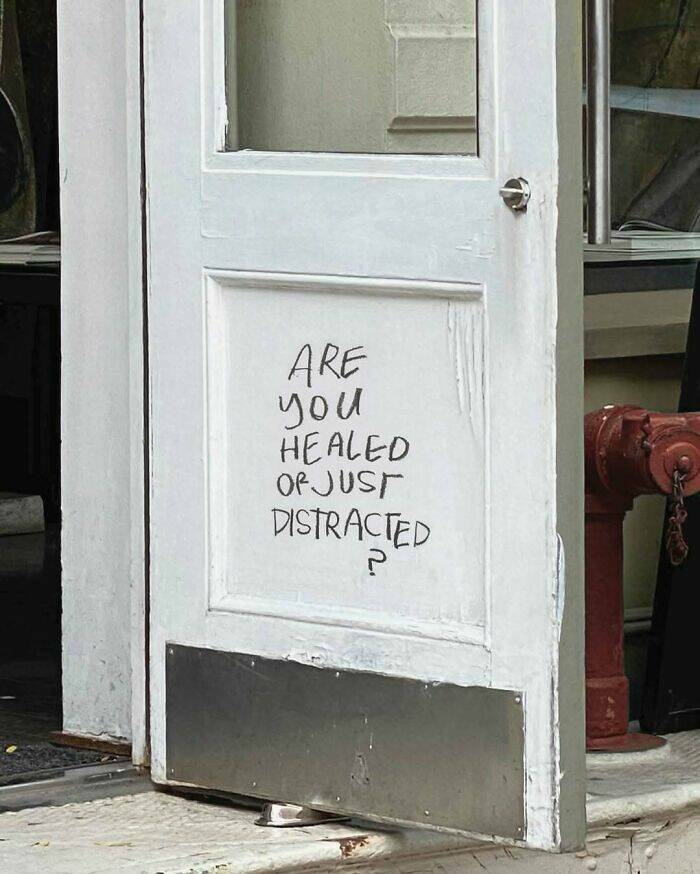 ARE
you
HEALED
OR JUST
DISTRACTED
?